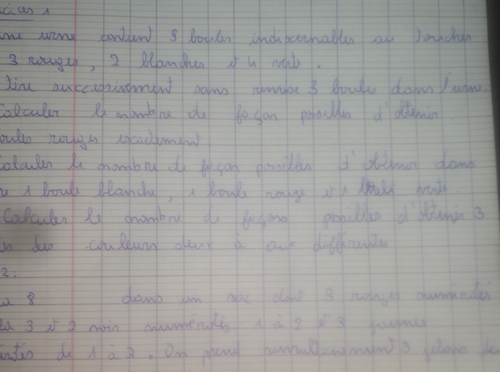 cices 1
une urne contient 9 boules indiscernables au toucher
3 rouges, 2 blanches et 4 verts.
tire successivement sans remise 3 boules dans l'urne.
Calculer le nombre de façon possibles d'obtenir
boules rouges exactement
Calculer le nombre de façon possibles d'obtenir dans
1 boule blanche, 1 boule rouge et 1 boule verte
Calculer le nombre de façons possibles d'obtenir 3
des couleurs deux à deux différentes
2:
8 dans un sac dont 3 rouges numérotés
3 et 2 noirs numérotés 1 à 2 et 3 jaunes
de 1 à 3. On prend simultanément 3 jetons